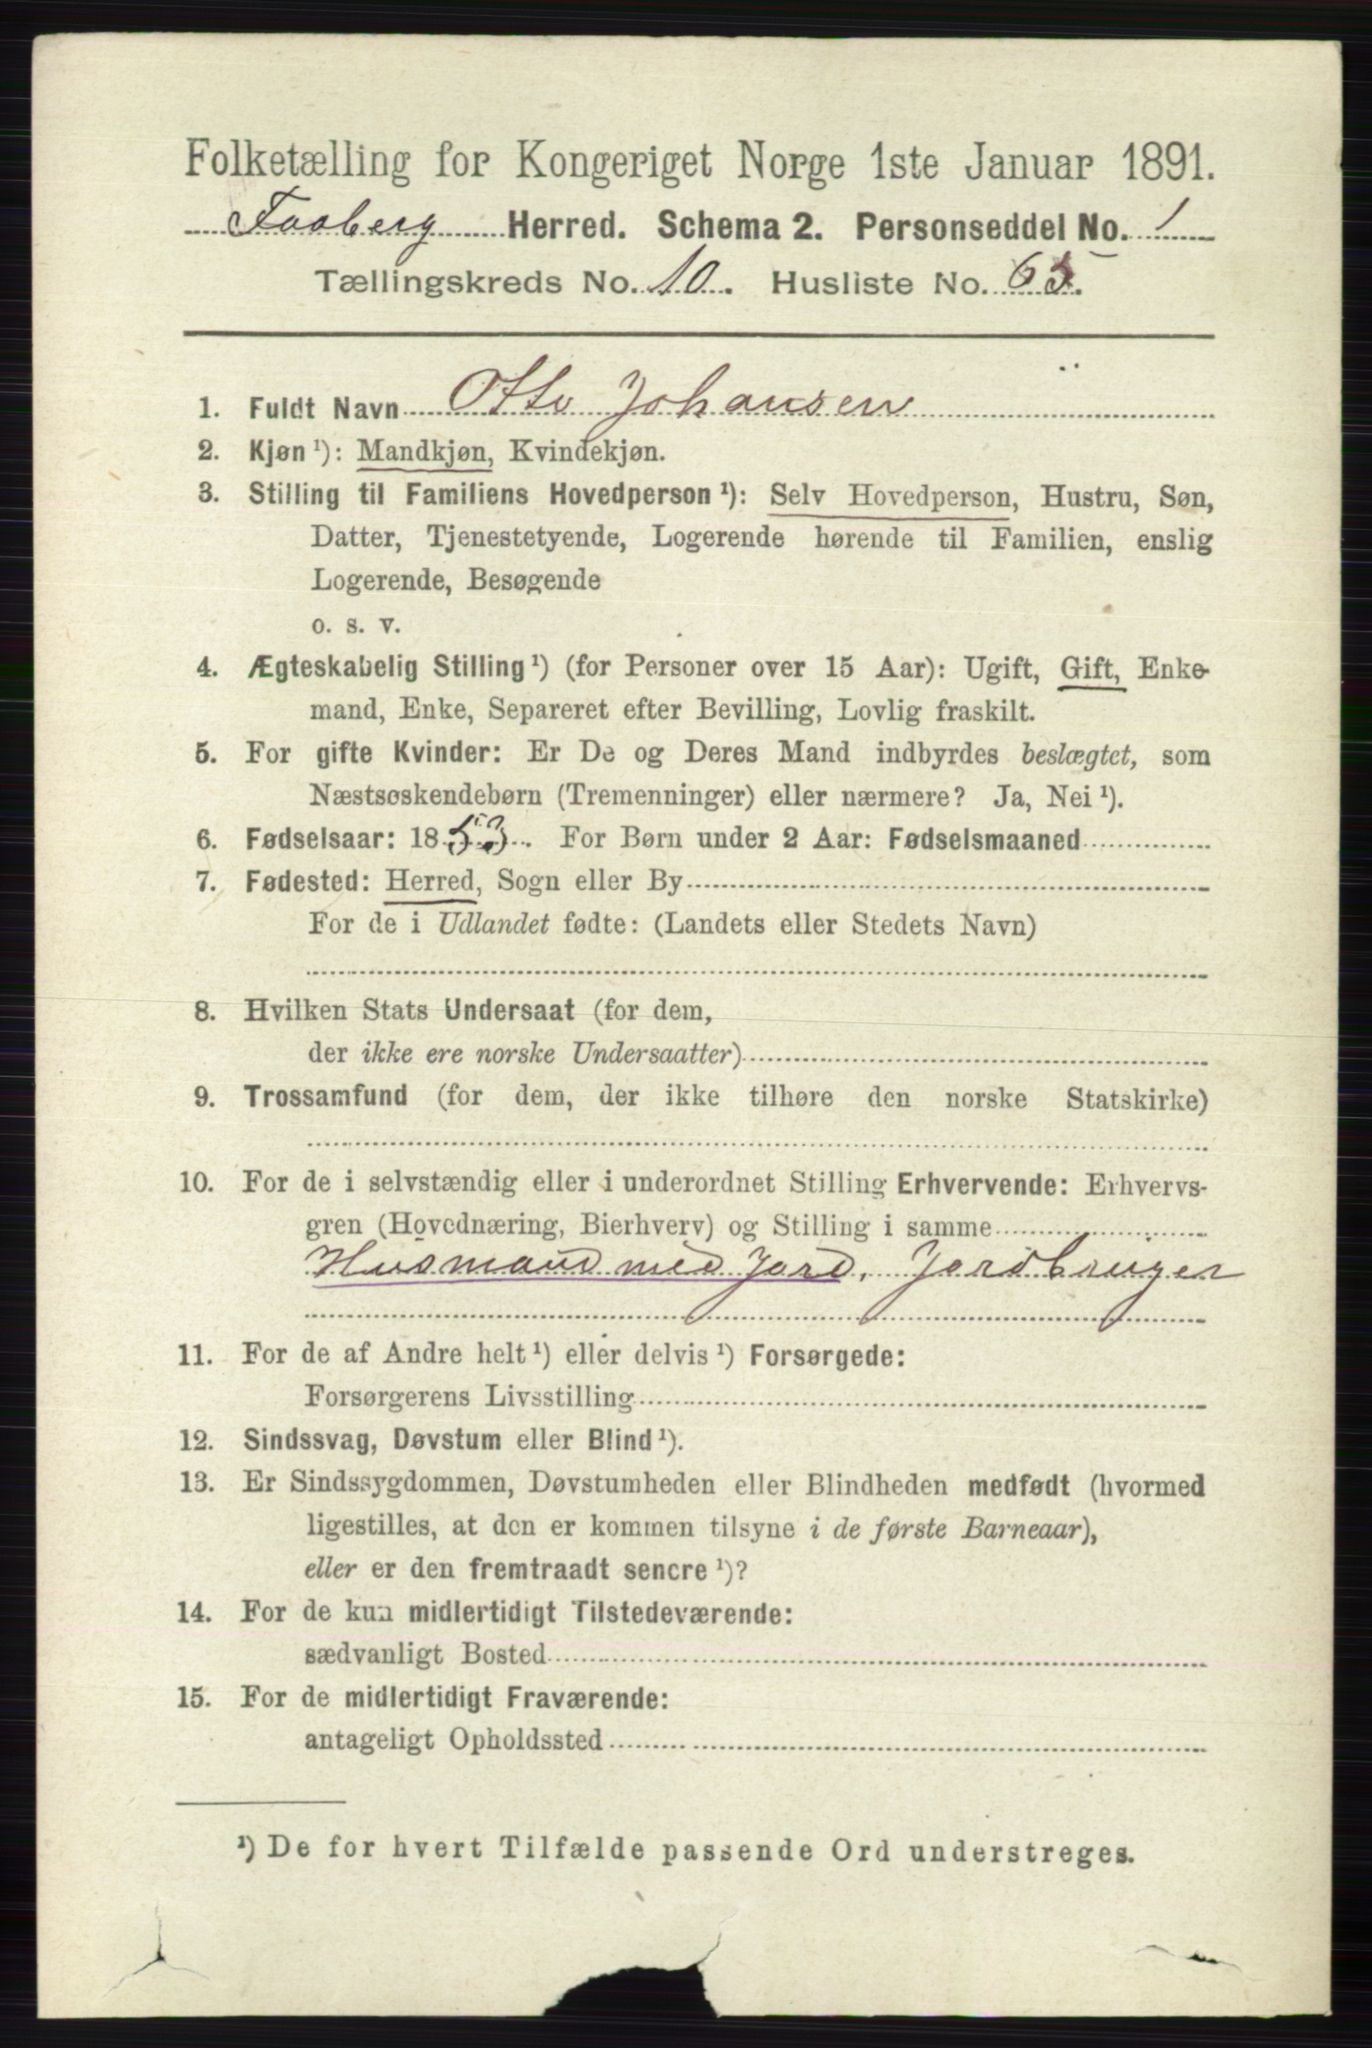 Folketælling for Kongeriget Norge 1ste Januar 1891.
Faaberg Herred. Schema 2. Personseddel No. 1
Tællingskreds No. 10. Husliste No. 65.
1. Fuldt Navn Otto Johansen
2. Kjøn ¹): Mandkjøn, Kvindekjøn.
3. Stilling til Familiens Hovedperson ¹): Selv Hovedperson, Hustru, Søn,
Datter, Tjenestetyende, Logerende hørende til Familien, enslig
Logerende, Besøgende
o. s. v.
4. Ægteskabelig Stilling ¹) (for Personer over 15 Aar): Ugift, Gift, Enke-
mand, Enke, Separeret efter Bevilling, Lovlig fraskilt.
5. For gifte Kvinder: Er De og Deres Mand indbyrdes beslægtet, som
Næstsøskendebørn (Tremenninger) eller nærmere? Ja, Nei ¹).
6. Fødselsaar: 1853. For Børn under 2 Aar: Fødselsmaaned
7. Fødested: Herred, Sogn eller By
For de i Udlandet fødte: (Landets eller Stedets Navn)
8. Hvilken Stats Undersaat (for dem,
der ikke ere norske Undersaatter)
9. Trossamfund (for dem, der ikke tilhøre den norske Statskirke)
10. For de i selvstændig eller i underordnet Stilling Erhvervende: Erhvervs-
gren (Hovednæring, Bierhverv) og Stilling i samme
Husmand med Jord, Jordbruger
11. For de af Andre helt ¹) eller delvis ¹) Forsørgede:
Forsørgerens Livsstilling
12. Sindssvag, Døvstum eller Blind ¹).
13. Er Sindssygdommen, Døvstumheden eller Blindheden medfødt (hvormed
ligestilles, at den er kommen tilsyne i de første Barneaar),
eller er den fremtraadt senere ¹)?
14. For de kun midlertidigt Tilstedeværende:
sædvanligt Bosted
15. For de midlertidigt Fraværende:
antageligt Opholdssted
¹) De for hvert Tilfælde passende Ord understreges.